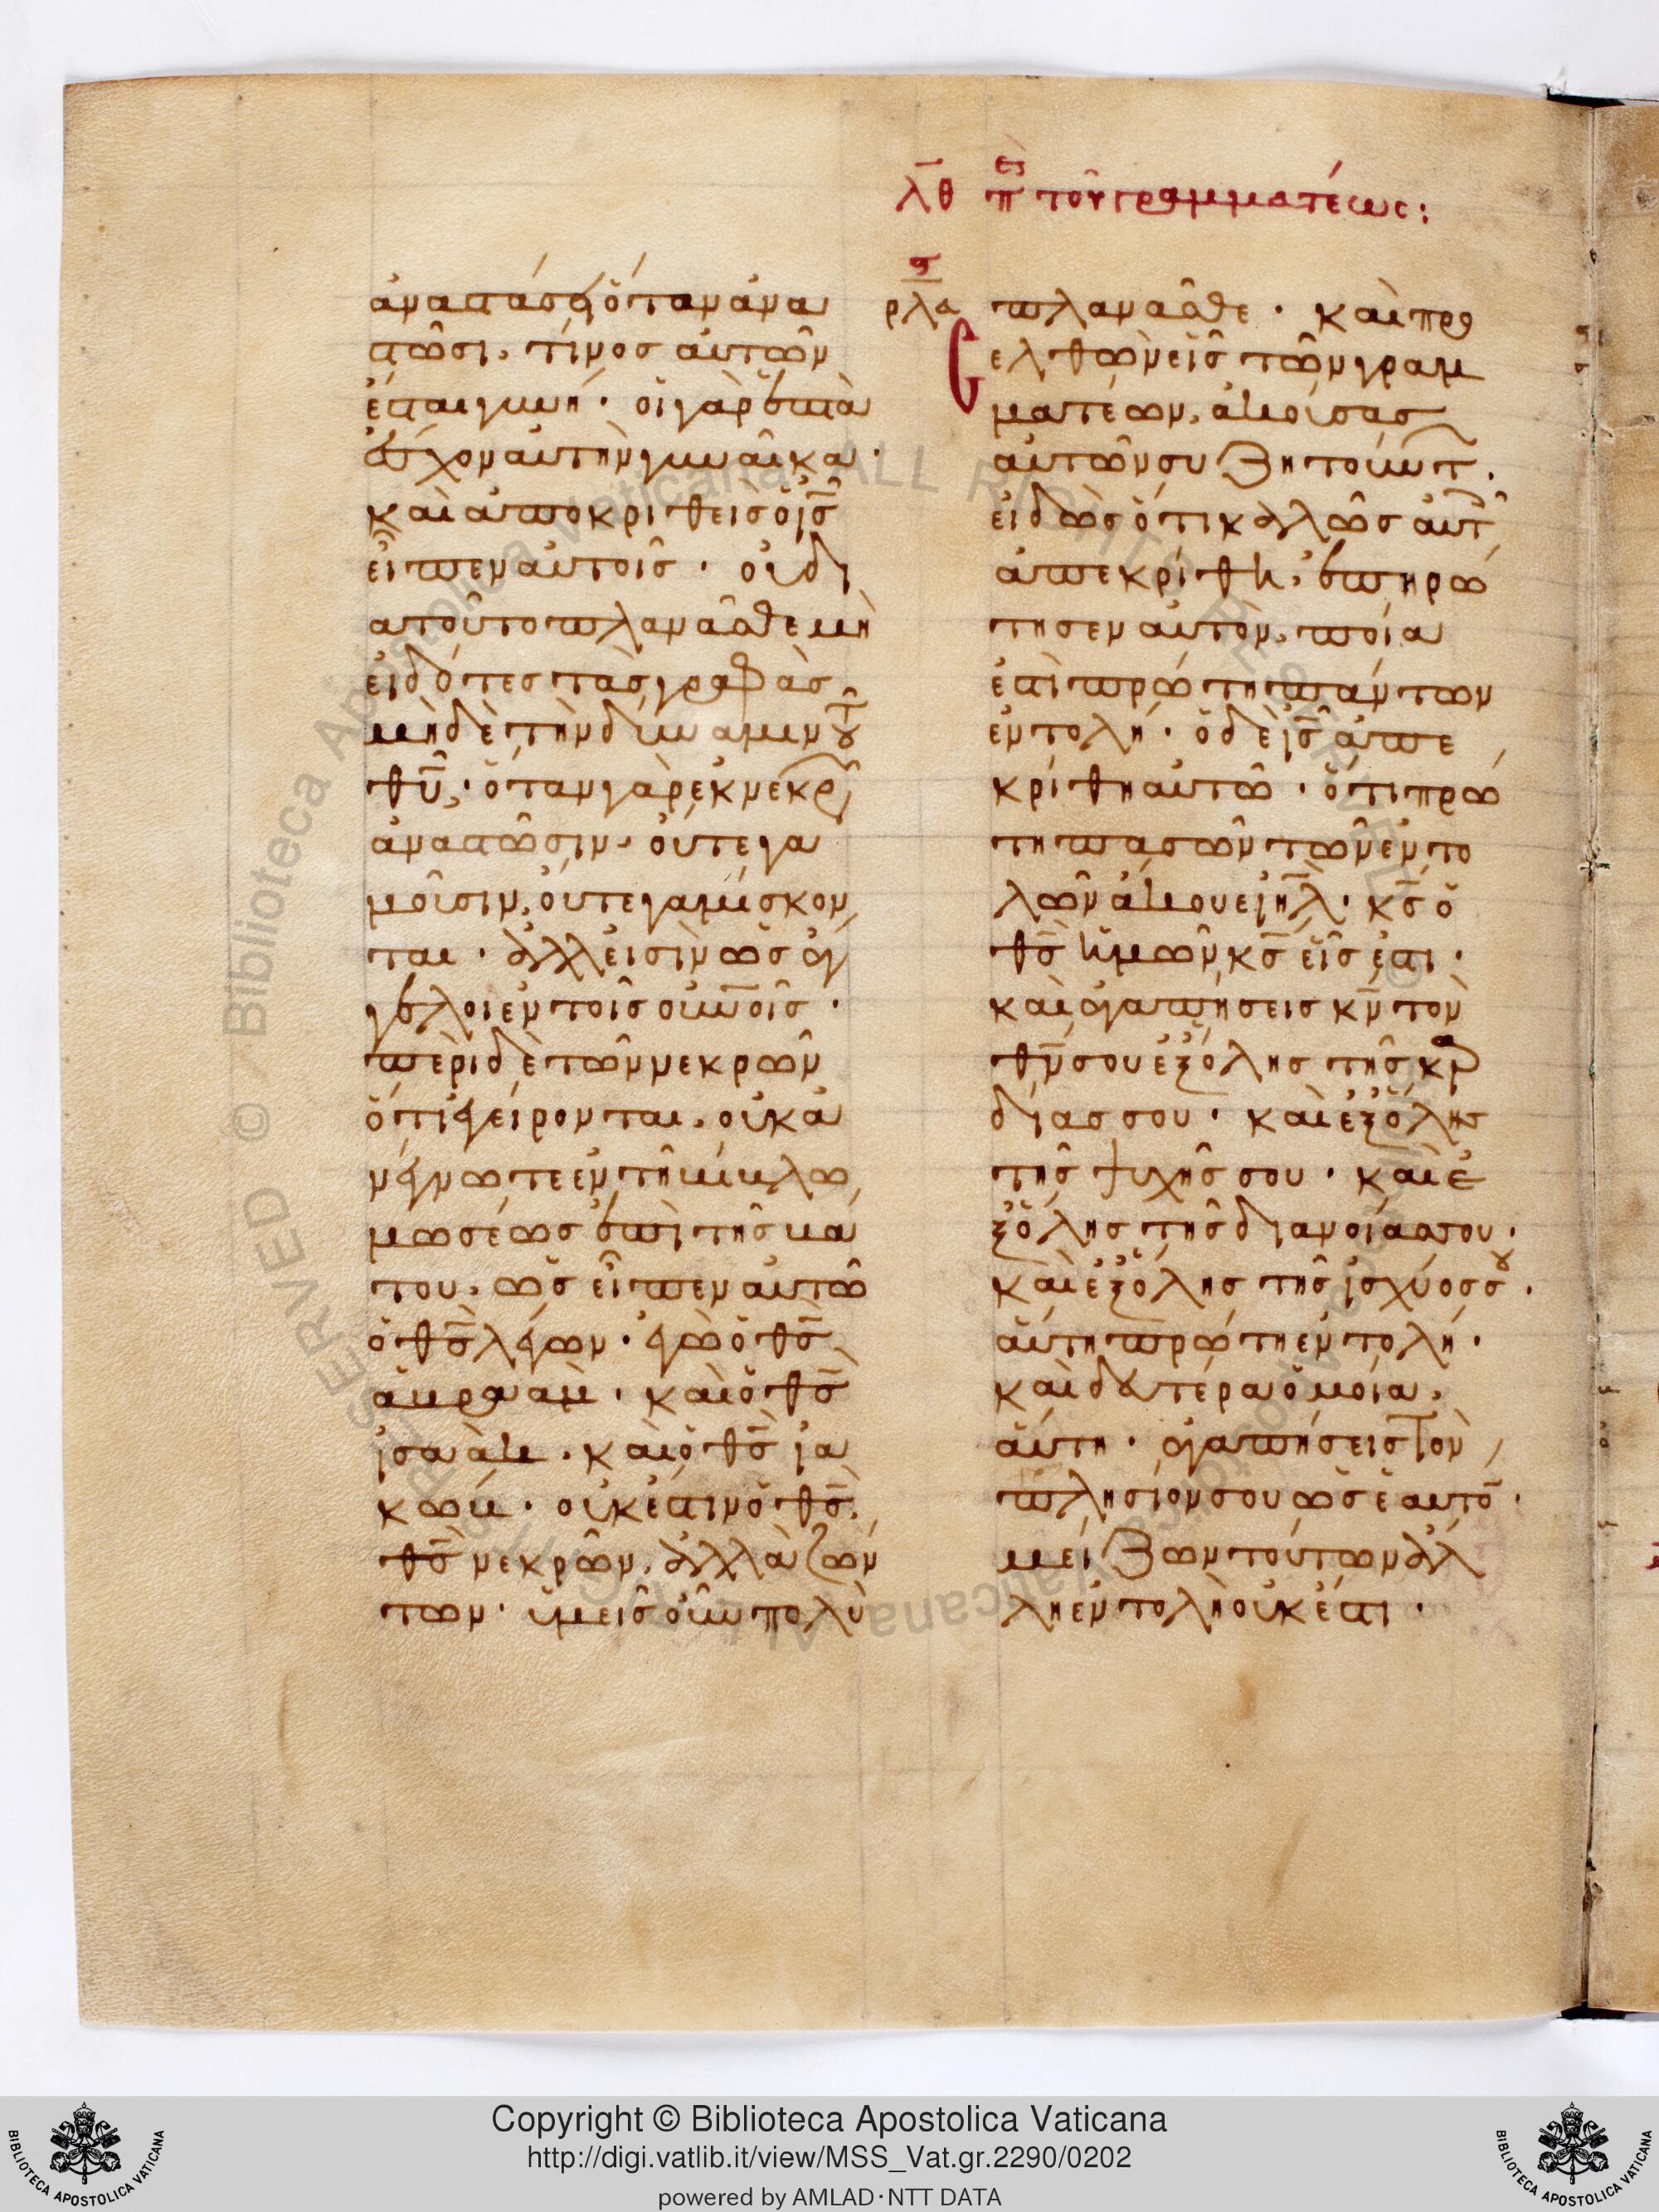 λθ πε τοῦ γραμματέως:
ἀναστάσει ὅταν ἀνα
στῶσι, τίνος αὐτῶν
ἔσται γυνή· οἱ γὰρ ἑπτὰ
ἔσχον αὐτὴν γυναῖκα·
καὶ ἀποκριθεὶς ὁ ις
εἶπεν αὐτοῖς· οὐ δι
α τοῦτο πλανᾶσθε μὴ
εἰδότες τὰς γραφὰς
μηδὲ τὴν δύναμιν τοῦ
θυ· ὅταν γὰρ ἐκ νεκρῶν
ἀναστῶσιν, οὔτε γα
μοῦσιν, οὔτε γαμίσκον
ται· ἀλλ' εἰσὶν ὡς ἄγ
γελοι ἐν τοῖς οὐνοῖς·
περὶ δὲ τῶν νεκρῶν
ὅτι ἐγείρονται, οὐκ ἀ
νέγνωτε ἐν τῇ βίβλω
μωσέως ἐπὶ τῆς βά
του, ὡς εἶπεν αὐτῶ
ὁ θς λέγων· ἐγὼ ὁ θς
ἀβραὰμ· καὶ ὁ θς
ἰσαὰκ· καὶ ὁ θς ἰα
κώβ· οὐκ ἔστιν ὁ θς
θς νεκρῶν, ἀλλὰ ζών
των· ὑμεῖς οὖν πολὺ
ϛ
ρλα
πλανᾶσθε· καὶ προσ
ελθὼν εἷς τῶν γραμ
ματέων, ἀκούσας
αὐτῶν συζητούντ
εἰδὼς ὅτι καλῶς αὐτ
ἀπεκρίθη, ἐπηρώ
τησεν αὐτὸν, ποία
ἐστὶ πρώτη πάντων
ἐντολή· ὁ δὲ ις ἀπε
κρίθη αὐτῶ· ὅτι πρώ
τη πασῶν τῶν ἐντο
λῶν ἄκουε ιηλ· κς ὁ
θς ἡμῶν κς εἷς ἐστι·
καὶ ἀγαπήσεις κν τὸν
θν σου ἐξ ὅλης τῆς καρ
δίας σου· καὶ ἐξ ὅλης
τῆς ψυχῆς σου· καὶ ἐ
ξ ὅλης τῆς διανοίας σου·
καὶ ἐξ ὅλης τῆς ἰσχύος σου·
αὕτη πρώτη ἐντολή·
καὶ δευτέρα ὁμοία,
αὕτη· ἀγαπήσεις τὸν
πλησίον σου ὡς ἑαυτό·
μείζων τούτων ἄλ
λη ἐντολὴ οὐκ ἔστι·
© Biblioteca Apostolica Vaticana ALL RIGHTS RESERVED
Copyright © Biblioteca Apostolica Vaticana
http://digi.vatlib.it/view/MSS_Vat.gr.2290/0202
powered by AMLAD·NTT DATA
BIBLIOTECA APOSTOLICA VATICANA
BIBLIOTECA APOSTOLICA VATICANA